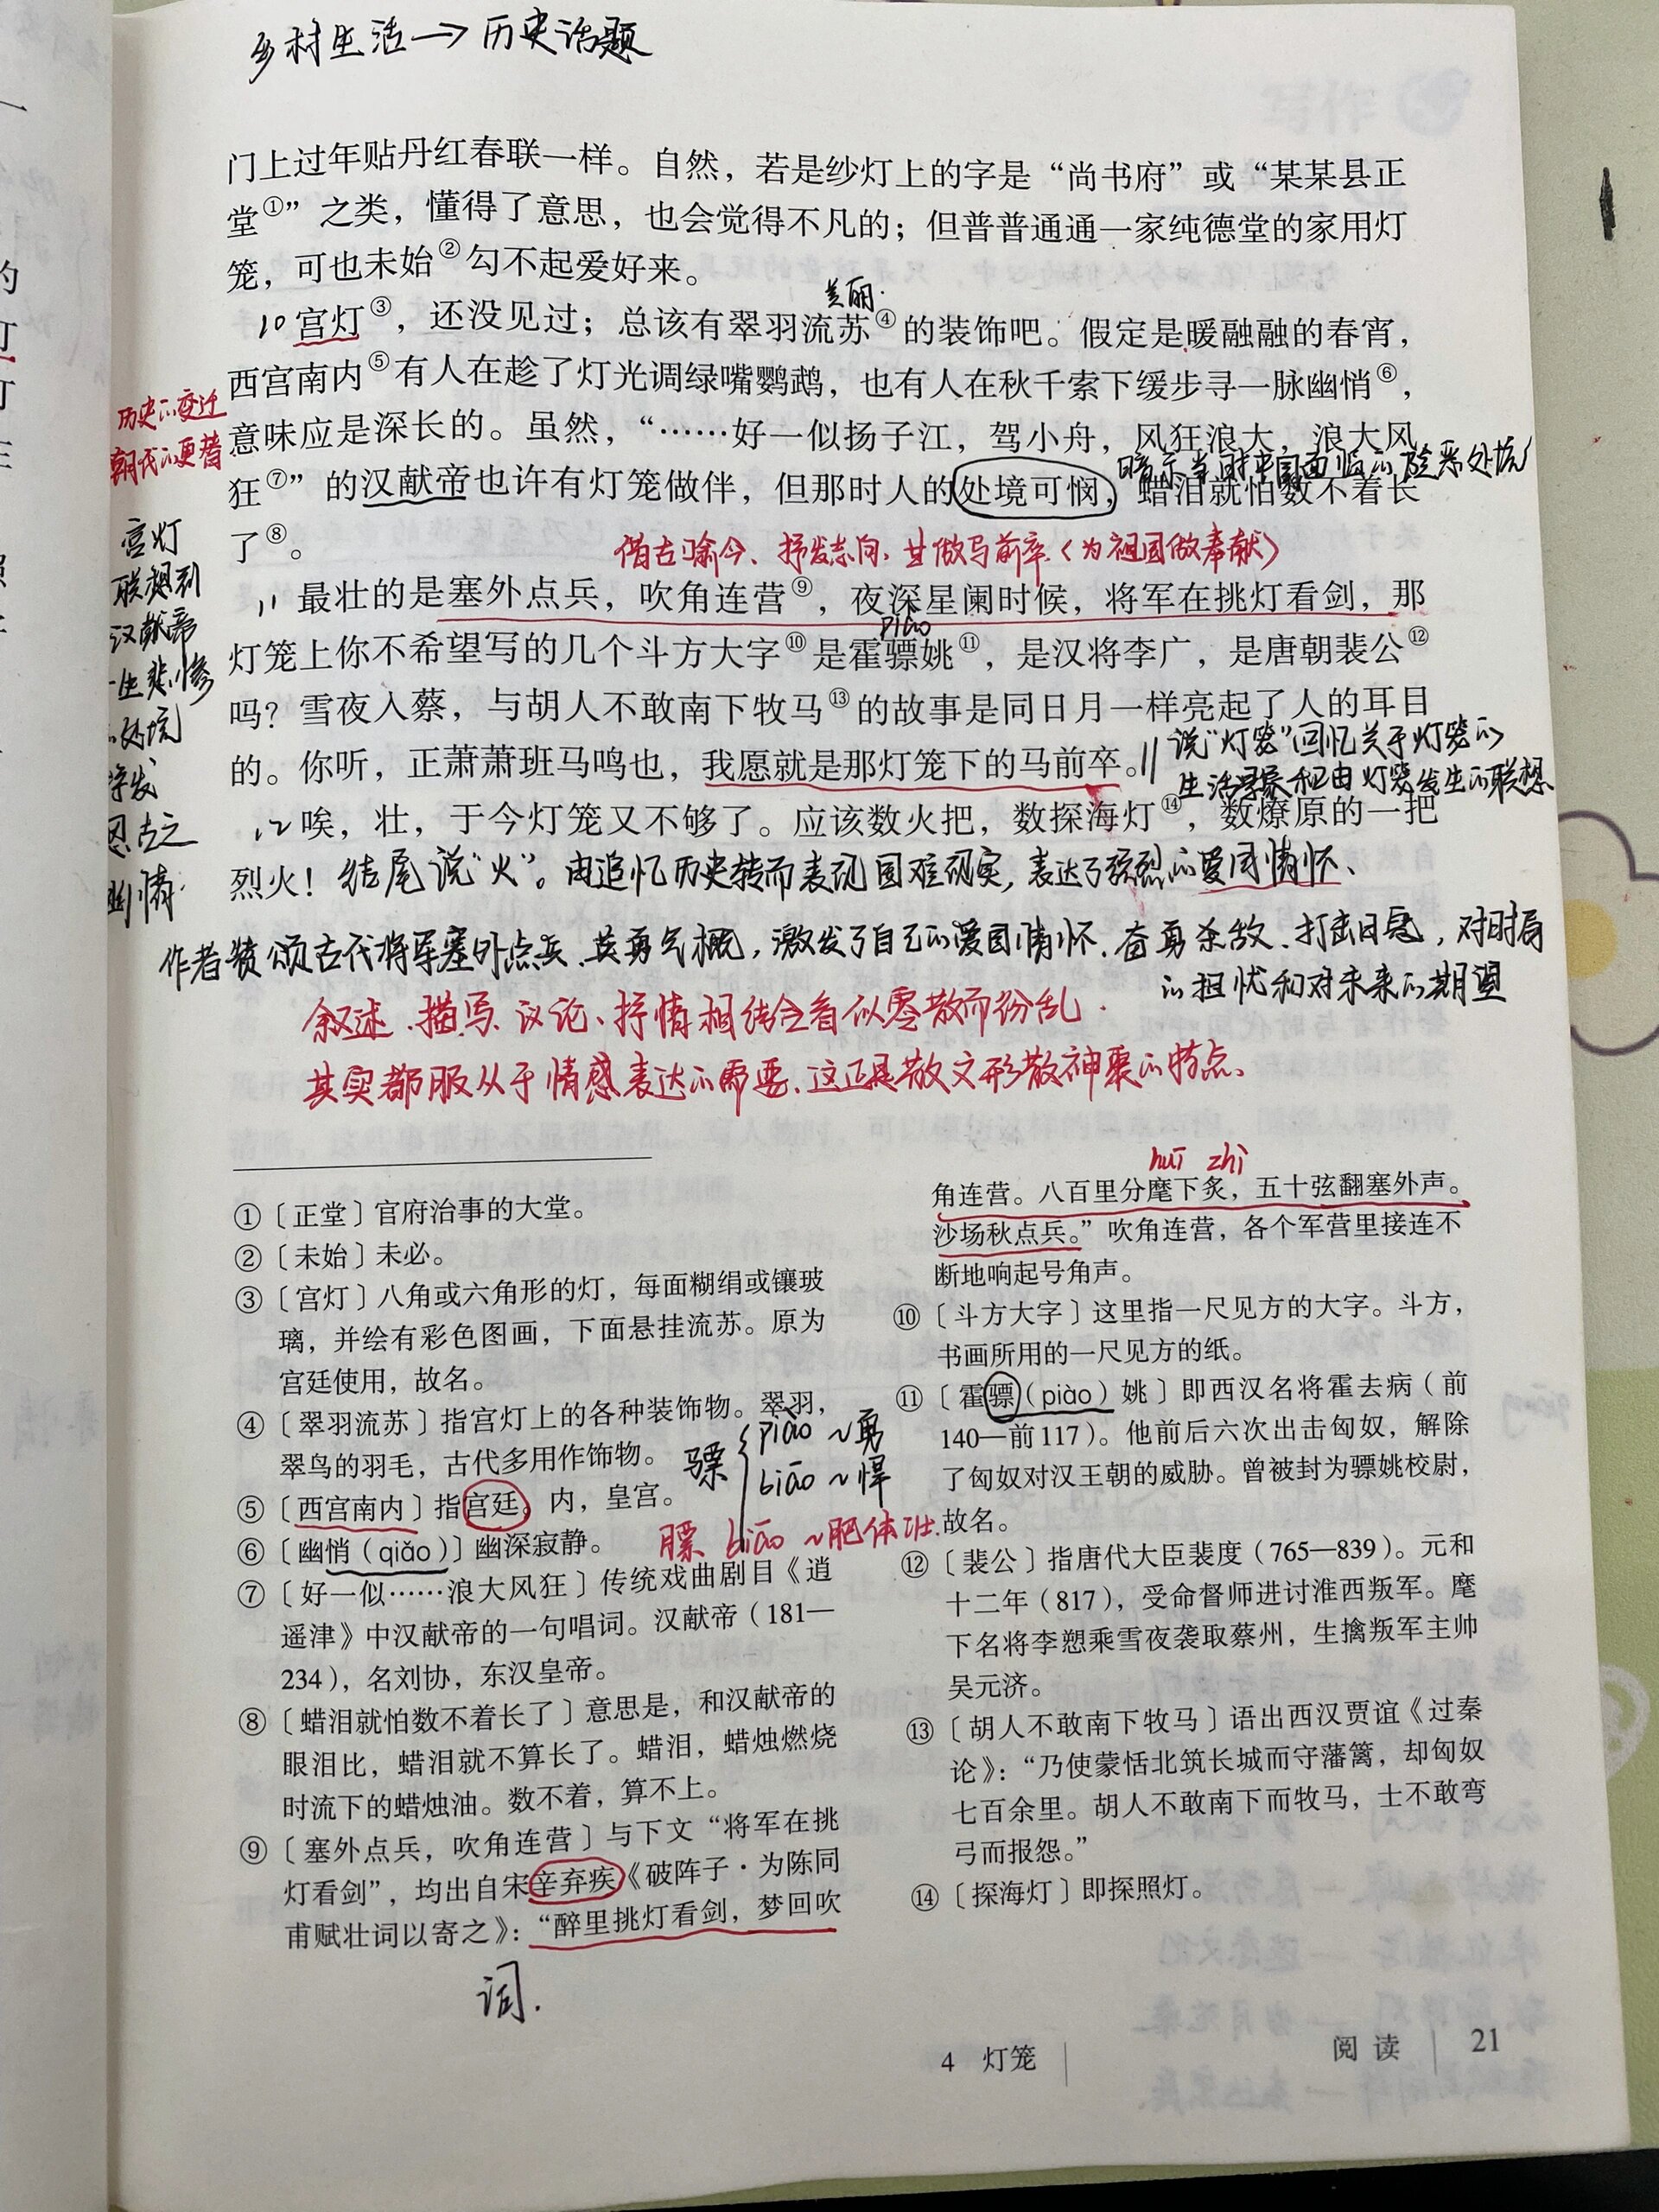 乡村生活→历史话题
门上过年贴丹红春联一样。自然，若是纱灯上的字是“尚书府”或“某某县正
堂①”之类，懂得了意思，也会觉得不凡的；但普普通通一家纯德堂的家用灯
笼，可也未始②勾不起爱好来。
美丽.
10 宫灯③，还没见过；总该有翠羽流苏④的装饰吧。假定是暖融融的春宵，
西宫南内⑤有人在趁了灯光调绿嘴鹦鹉，也有人在秋千索下缓步寻一脉幽悄⑥，
历史的变迁
朝代的更替
意味应是深长的。虽然，“……好一似扬子江，驾小舟，风狂浪大，浪大风
暗示当时中国面临的险恶处境
狂⑦”的汉献帝也许有灯笼做伴，但那时人的处境可悯，蜡泪就怕数不着长
了⑧。
宫灯
联想到
汉献帝
一生悲惨
的处境
抒发
思古之
幽情.
借古喻今、抒发志向、甘做马前卒（为祖国做奉献）
11 最壮的是塞外点兵，吹角连营⑨，夜深星阑时候，将军在挑灯看剑，那
piào
灯笼上你不希望写的几个斗方大字⑩是霍骠姚⑪，是汉将李广，是唐朝裴公⑫
吗？雪夜入蔡，与胡人不敢南下牧马⑬的故事是同日月一样亮起了人的耳目
的。你听，正萧萧班马鸣也，我愿就是那灯笼下的马前卒。
说“灯笼”回忆关于灯笼的
生活场景和由灯笼发生的联想
12 唉，壮，于今灯笼又不够了。应该数火把，数探海灯⑭，数燎原的一把
烈火！结尾说“火”。由追忆历史转而表现国难现实，表达了强烈的爱国情怀、
作者赞颂古代将军塞外点兵、英勇气概，激发了自己的爱国情怀、奋勇杀敌、打击日寇，对时局
的担忧和对未来的期望
叙述、描写、议论、抒情相结合看似零散而纷乱.
其实都服从于情感表达的需要、这正是散文形散神聚的特点、
①〔正堂〕官府治事的大堂。
②〔未始〕未必。
③〔宫灯〕八角或六角形的灯，每面糊绢或镶玻
璃，并绘有彩色图画，下面悬挂流苏。原为
宫廷使用，故名。
④〔翠羽流苏〕指宫灯上的各种装饰物。翠羽，
翠鸟的羽毛，古代多用作饰物。
骠 piào ~勇
biāo ~悍
⑤〔西宫南内〕指宫廷。内，皇宫。
膘 biāo ~肥体壮.
⑥〔幽悄（qiǎo）〕幽深寂静。
⑦〔好一似……浪大风狂〕传统戏曲剧目《逍
遥津》中汉献帝的一句唱词。汉献帝（181—
234），名刘协，东汉皇帝。
⑧〔蜡泪就怕数不着长了〕意思是，和汉献帝的
眼泪比，蜡泪就不算长了。蜡泪，蜡烛燃烧
时流下的蜡烛油。数不着，算不上。
⑨〔塞外点兵，吹角连营〕与下文“将军在挑
灯看剑”，均出自宋辛弃疾《破阵子·为陈同
甫赋壮词以寄之》：“醉里挑灯看剑，梦回吹
词.
huī zhì
角连营。八百里分麾下炙，五十弦翻塞外声。
沙场秋点兵。”吹角连营，各个军营里接连不
断地响起号角声。
⑩〔斗方大字〕这里指一尺见方的大字。斗方，
书画所用的一尺见方的纸。
⑪〔霍骠（piào）姚〕即西汉名将霍去病（前
140—前117）。他前后六次出击匈奴，解除
了匈奴对汉王朝的威胁。曾被封为骠姚校尉，
故名。
⑫〔裴公〕指唐代大臣裴度（765—839）。元和
十二年（817），受命督师进讨淮西叛军。麾
下名将李愬乘雪夜袭取蔡州，生擒叛军主帅
吴元济。
⑬〔胡人不敢南下牧马〕语出西汉贾谊《过秦
论》：“乃使蒙恬北筑长城而守藩篱，却匈奴
七百余里。胡人不敢南下而牧马，士不敢弯
弓而报怨。”
⑭〔探海灯〕即探照灯。
4 灯笼 阅读 21